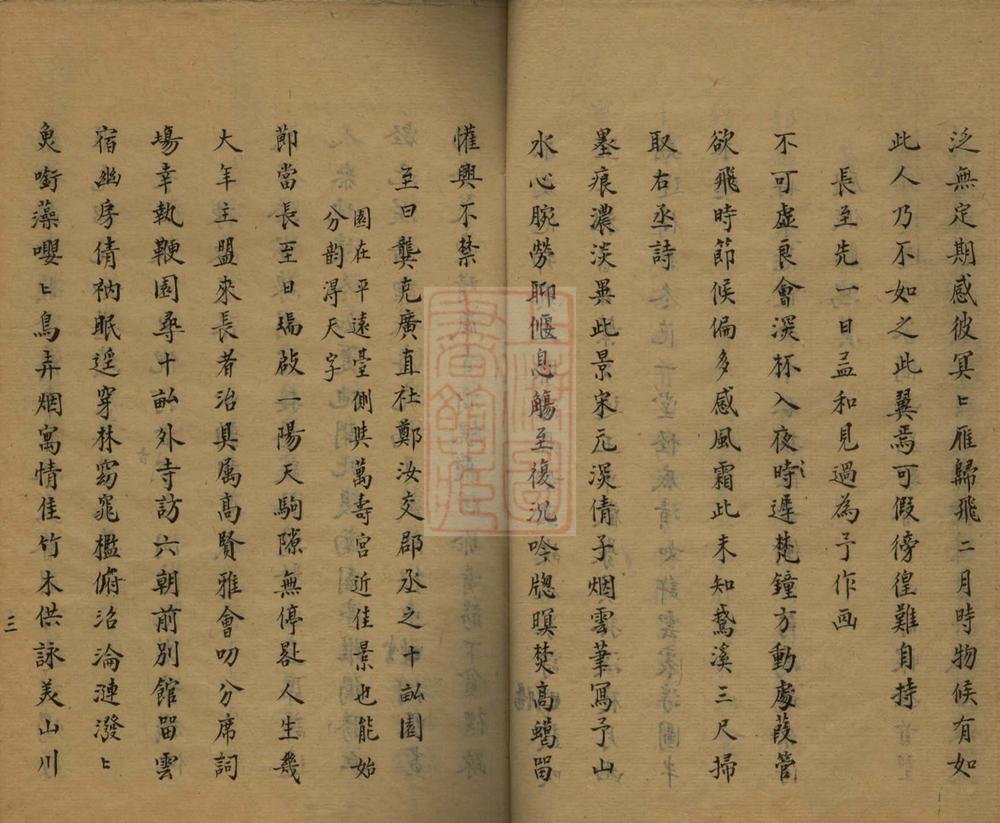 泛無定期感彼冥〻雁歸飛二月時物候有如
此人乃不如之此翼焉可假徬徨難自持
長至先一日孟和見過為予作画
不可虚良會深杯入夜時遲梵鐘方動處葭管
欲飛時節候偏多感風霜此未知鵞溪三尺掃
取右丞詩
墨痕濃淡異此景宋元深倩子烟雲筆寫予山
水心腕勞聊偃息觴至復况吟牕暝焚高蠟留
惟興不禁
至日龔克廣直社鄭汝交郡丞之十畝園
園在平遠臺側與萬壽宮近佳景也能始
分韵得天字
節當長至日塲啟一陽天駒隙無停晷人生幾
大年主盟來長者治具属高賢雅會叨分席詞
塲幸執鞭園尋十畝外寺訪六朝前別館留雲
宿幽房倩衲眠遥穿林窈窕檻俯沼淪漣潑〻
魚啣藻嚶〻鳥弄烟寓情佳竹木供詠美山川
三